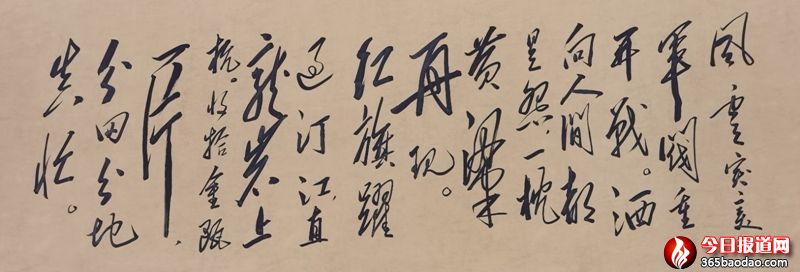 風雲突变
軍閥重
开戰。洒
向人間都
是怨。一枕
黄粱
再現。
红旗躍
过汀江,直
龍岩上
杭。收拾金甌
一片、
分田分地
真忙。
今日报道网
365baodao.com